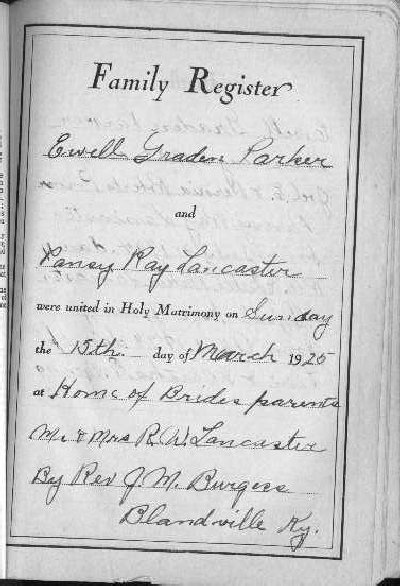 Family Register
Ewell Graden Parker
and
Pansy Ray Lancaster
were united in Holy Matrimony on Sunday
the 15th day of March 1925
at Home of Brides parents
Mr & Mrs R. W. Lancaster
By Rev J. M. Burgess
Blandville Ky.